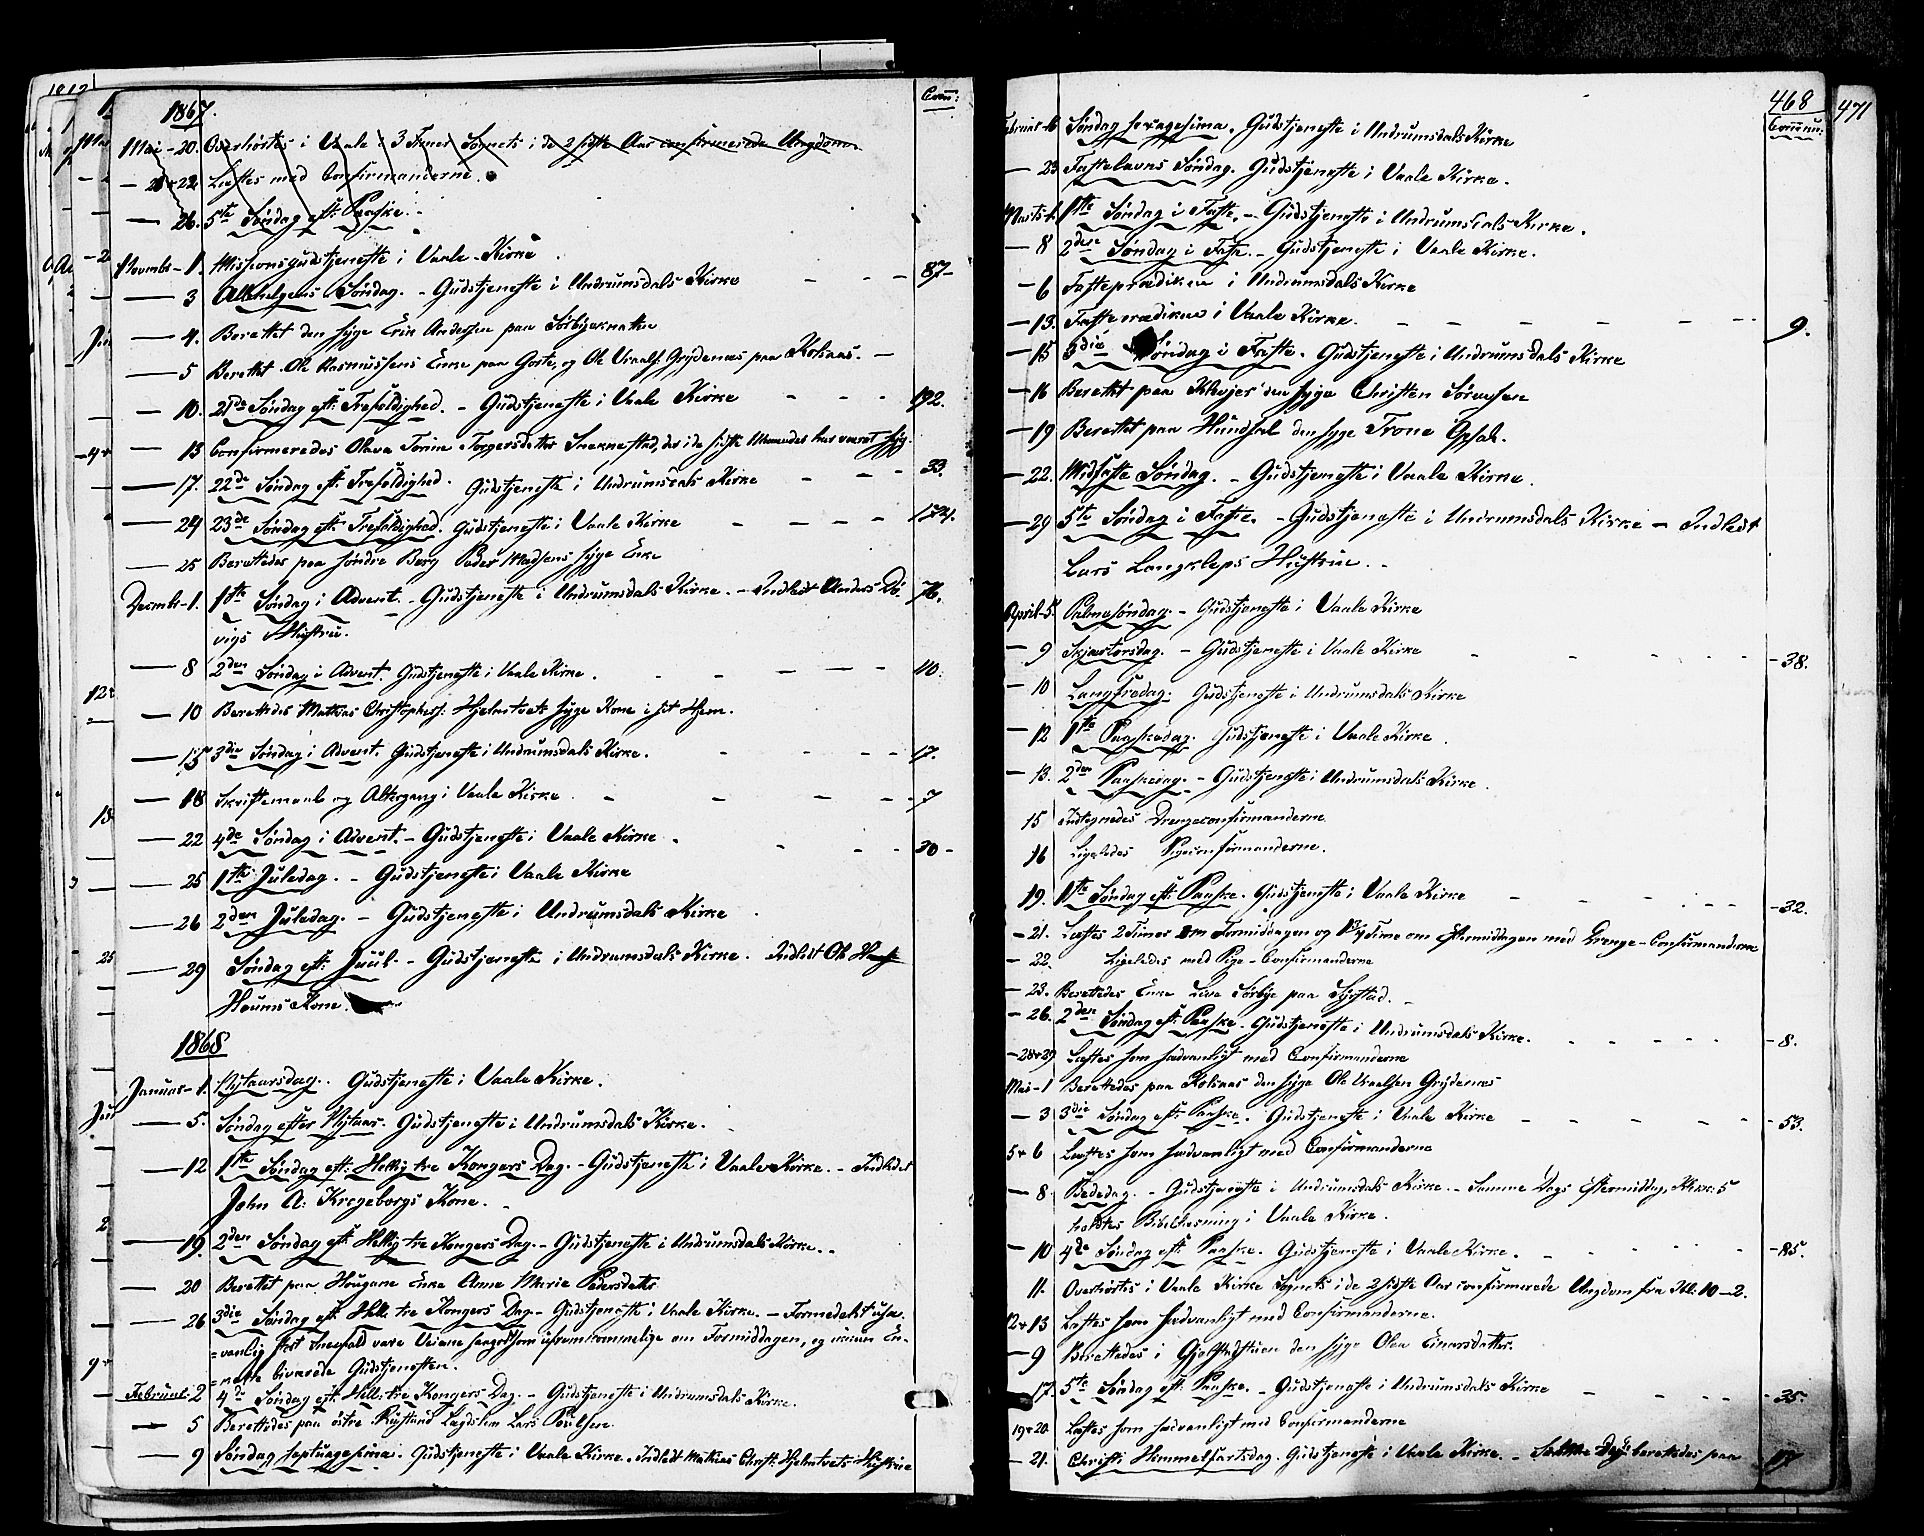 1867.
Comm:
Mai - 20. Overhørtes i Vaale i 3 Timer Sognets i de 2 sidste Aar confirmerede Ungdom
— 21+22 Læstes med Confirmanderne.
— 26. 5te Søndag eft: Paaske.
Novembr - 1. Missionsgudstjeneste i Vaale Kirke
— 3 Allehelgens Søndag. - Gudstjeneste i Undrumsdals Kirke - - - 87-
— 4. Berettet den syge Erik Andersen paa Sørbyeknatten
— 5 Berettet Ole Rasmussens Enke paa Gorte, og Ole Uvaals: Grydenæs paa Kolsaas. —
— 10. 21de Søndag eft: Trefoldighed. - Gudstjeneste i Vaale Kirke - - - 192.
— 13 Confirmeredes Olava Torine Torgersdatter Snekkestad, der i de sidste Maaneder har været syg.
— 17. 22de Søndag eft: Trefoldighed. Gudstjeneste i Undrumsdals Kirke - - - 33.
— 24 23de Søndag eft: Trefoldighed. Gudstjeneste i Vaale Kirke - - - - 154.
— 25 Berettedes paa søndre Berg Peder Madsens syge Enke
Decembr - 1. 1ste Søndag i Advent. - Gudstjeneste i Undrumsdals Kirke. - Indledt Anders Dø- 76.
vigs Hustru.
— 8 2den Søndag i Advent. Gudstjeneste i Vaale Kirke. - - - - 40.
— 10 Berettedes Mathias Christophers: Hjelmtvets syge Kone i sit Hjem.
— 15 3die Søndag i Advent. Gudstjeneste i Undrumsdals Kirke. - - - - 17.
— 18 Skriftemaal og Altergang i Vaale Kirke - - - - 7
— 22 4de Søndag i Advent. - Gudstjeneste i Vaale Kirke. - - - 30-
— 25 1ste Juledag. - Gudstjeneste i Vaale Kirke
— 26 2den Juledag. - Gudstjeneste i Undrumsdals Kirke
— 29 Søndag eft: Juul. - Gudstjeneste i Undrumsdals Kirke. Indledt Ole
Houms Kone.
1868
Januar - 1. Nytaarsdag. Gudstjeneste i Vaale Kirke.
— 5. Søndag efter Nytaar. Gudstjeneste i Undrumsdals Kirke.
— 12 1ste Søndag eft: Hellig tre Kongers Dag. - Gudstjeneste i Vaale Kirke. - Indledet
John A: Kregeborgs Kone.
— 19. 2den Søndag eft: Hellig tre Kongers Dag. - Gudstjeneste i Undrumsdals Kirke.
— 20 Berettet paa Hougane Enke Anne Marie Pedersdatter
— 26 3die Søndag eft: Hell: tre Kongers Dag - Gudstjeneste i Vaale Kirke. - Formedelst usæ-
=vanlig stort Sneefald vare Veiene saagodtsom ufremkommelige om Formiddagen, og ikkun En-
=nelte bivaarede Gudstjenesten.
Februar - 2 4de Søndag eft: Hell: tre Kongers Dag. - Gudstjeneste i Undrumsdals Kirke.
— 5 Berettedes paa østre Lars Poulsen
— 9 Søndag septuagesima. Gudstjeneste i Vaale Kirke. Indledt Mathias Christ: Hjelmtvets Hustrue
468
471
Commu:
Februar - 16 Søndag sexagesima. Gudstjeneste i Undrumsdals Kirke
— 23 Fastelavns Søndag. Gudstjeneste i Vaale Kirke.
Marts - 1. 1ste Søndag i Faste. - Gudstjeneste i Undrumsdals Kirke.
— 8 2den Søndag i Faste. - Gudstjeneste i Vaale Kirke.
— 6 Fasteprædiken i Undrumsdals Kirke
— 13. Fasteprædiken i Vaale Kirke. - - - - - - 9.
— 15 3die Søndag i Faste. Gudstjeneste i Undrumsdals Kirke
— 16 Berettet paa Klevjer den syge Christen Sørensen
— 19 Berettet paa Hundsal den syge Trone Opsal.
— 22. Midfaste Søndag. - Gudstjeneste i Vaale Kirke.
— 29 5te Søndag i Faste. - Gudstjeneste i Undrumsdals Kirke - Indledt
Lars Langkleps Hustrue.
April - 5. Palmesøndag. - Gudstjeneste i Vaale Kirke
— 9 Skjærtorsdag. - Gudstjeneste i Vaale Kirke - - - - - 38.
— 10 Langfredag. Gudstjeneste i Undrumsdals Kirke
— 12 1ste Paaskedag. Gudstjeneste i Vaale Kirke
— 13. 2den Paaskedag. - Gudstjeneste i Undrumsdals Kirke.
15 Indtegnedes Drengeconfirmanderne
16 Ligeledes Pigeconfirmanderne.
19. 1ste Søndag eft: Paaske. Gudstjeneste i Vaale Kirke - - - - - 32.
— 21. Læstes 2 Timer om Formiddagen og 1½ Time om Eftermiddagen med Drenge-Confirmanderne
— 22. Ligeledes med Pige-Confirmanderne
— 23. Berettedes Enke Live Sørbye paa
— 26. 2den Søndag eft: Paaske. Gudstjeneste i Undrumsdals Kirke. - - - - - 8.
— 28+29 Læstes som sædvanligt med Confirmanderne
Mai - 1 Berettedes paa Kolsaas den syge Ole Uvaalsen Grydenæs
— 3 3die Søndag eft: Paaske. Gudstjeneste i Vaale Kirke - - - - - 53.
5+6 Læstes som sædvanligt med Confirmanderne
— 8. Bededag. - Gudstjeneste i Undrumsdals Kirke. - Samme Dags Eftermiddag, Klok: 5
holdtes Bibellæsning i Vaale Kirke.
— 10 4de Søndag eft: Paaske. Gudstjeneste i Vaale Kirke. - - - - - 85.
11. Overhørtes i Vaale Kirke Sognets i de 2 sidste Aar confirmerede Ungdom fra Kl: 10-2.
12+13 Læstes som sædvanligt med Confirmanderne.
— 9 Berettedes i den syge Olea Einersdatter.
17. 5te Søndag eft: Paaske. - Gudstjeneste i Undrumsdals Kirke - - - - 35.
19+20 Læstes som sædvanligt med Confirmanderne
— 21. Christi Himmelfartsdag. Gudstjeneste i Vaale Kirke. - Samme Dag berettedes paa 17